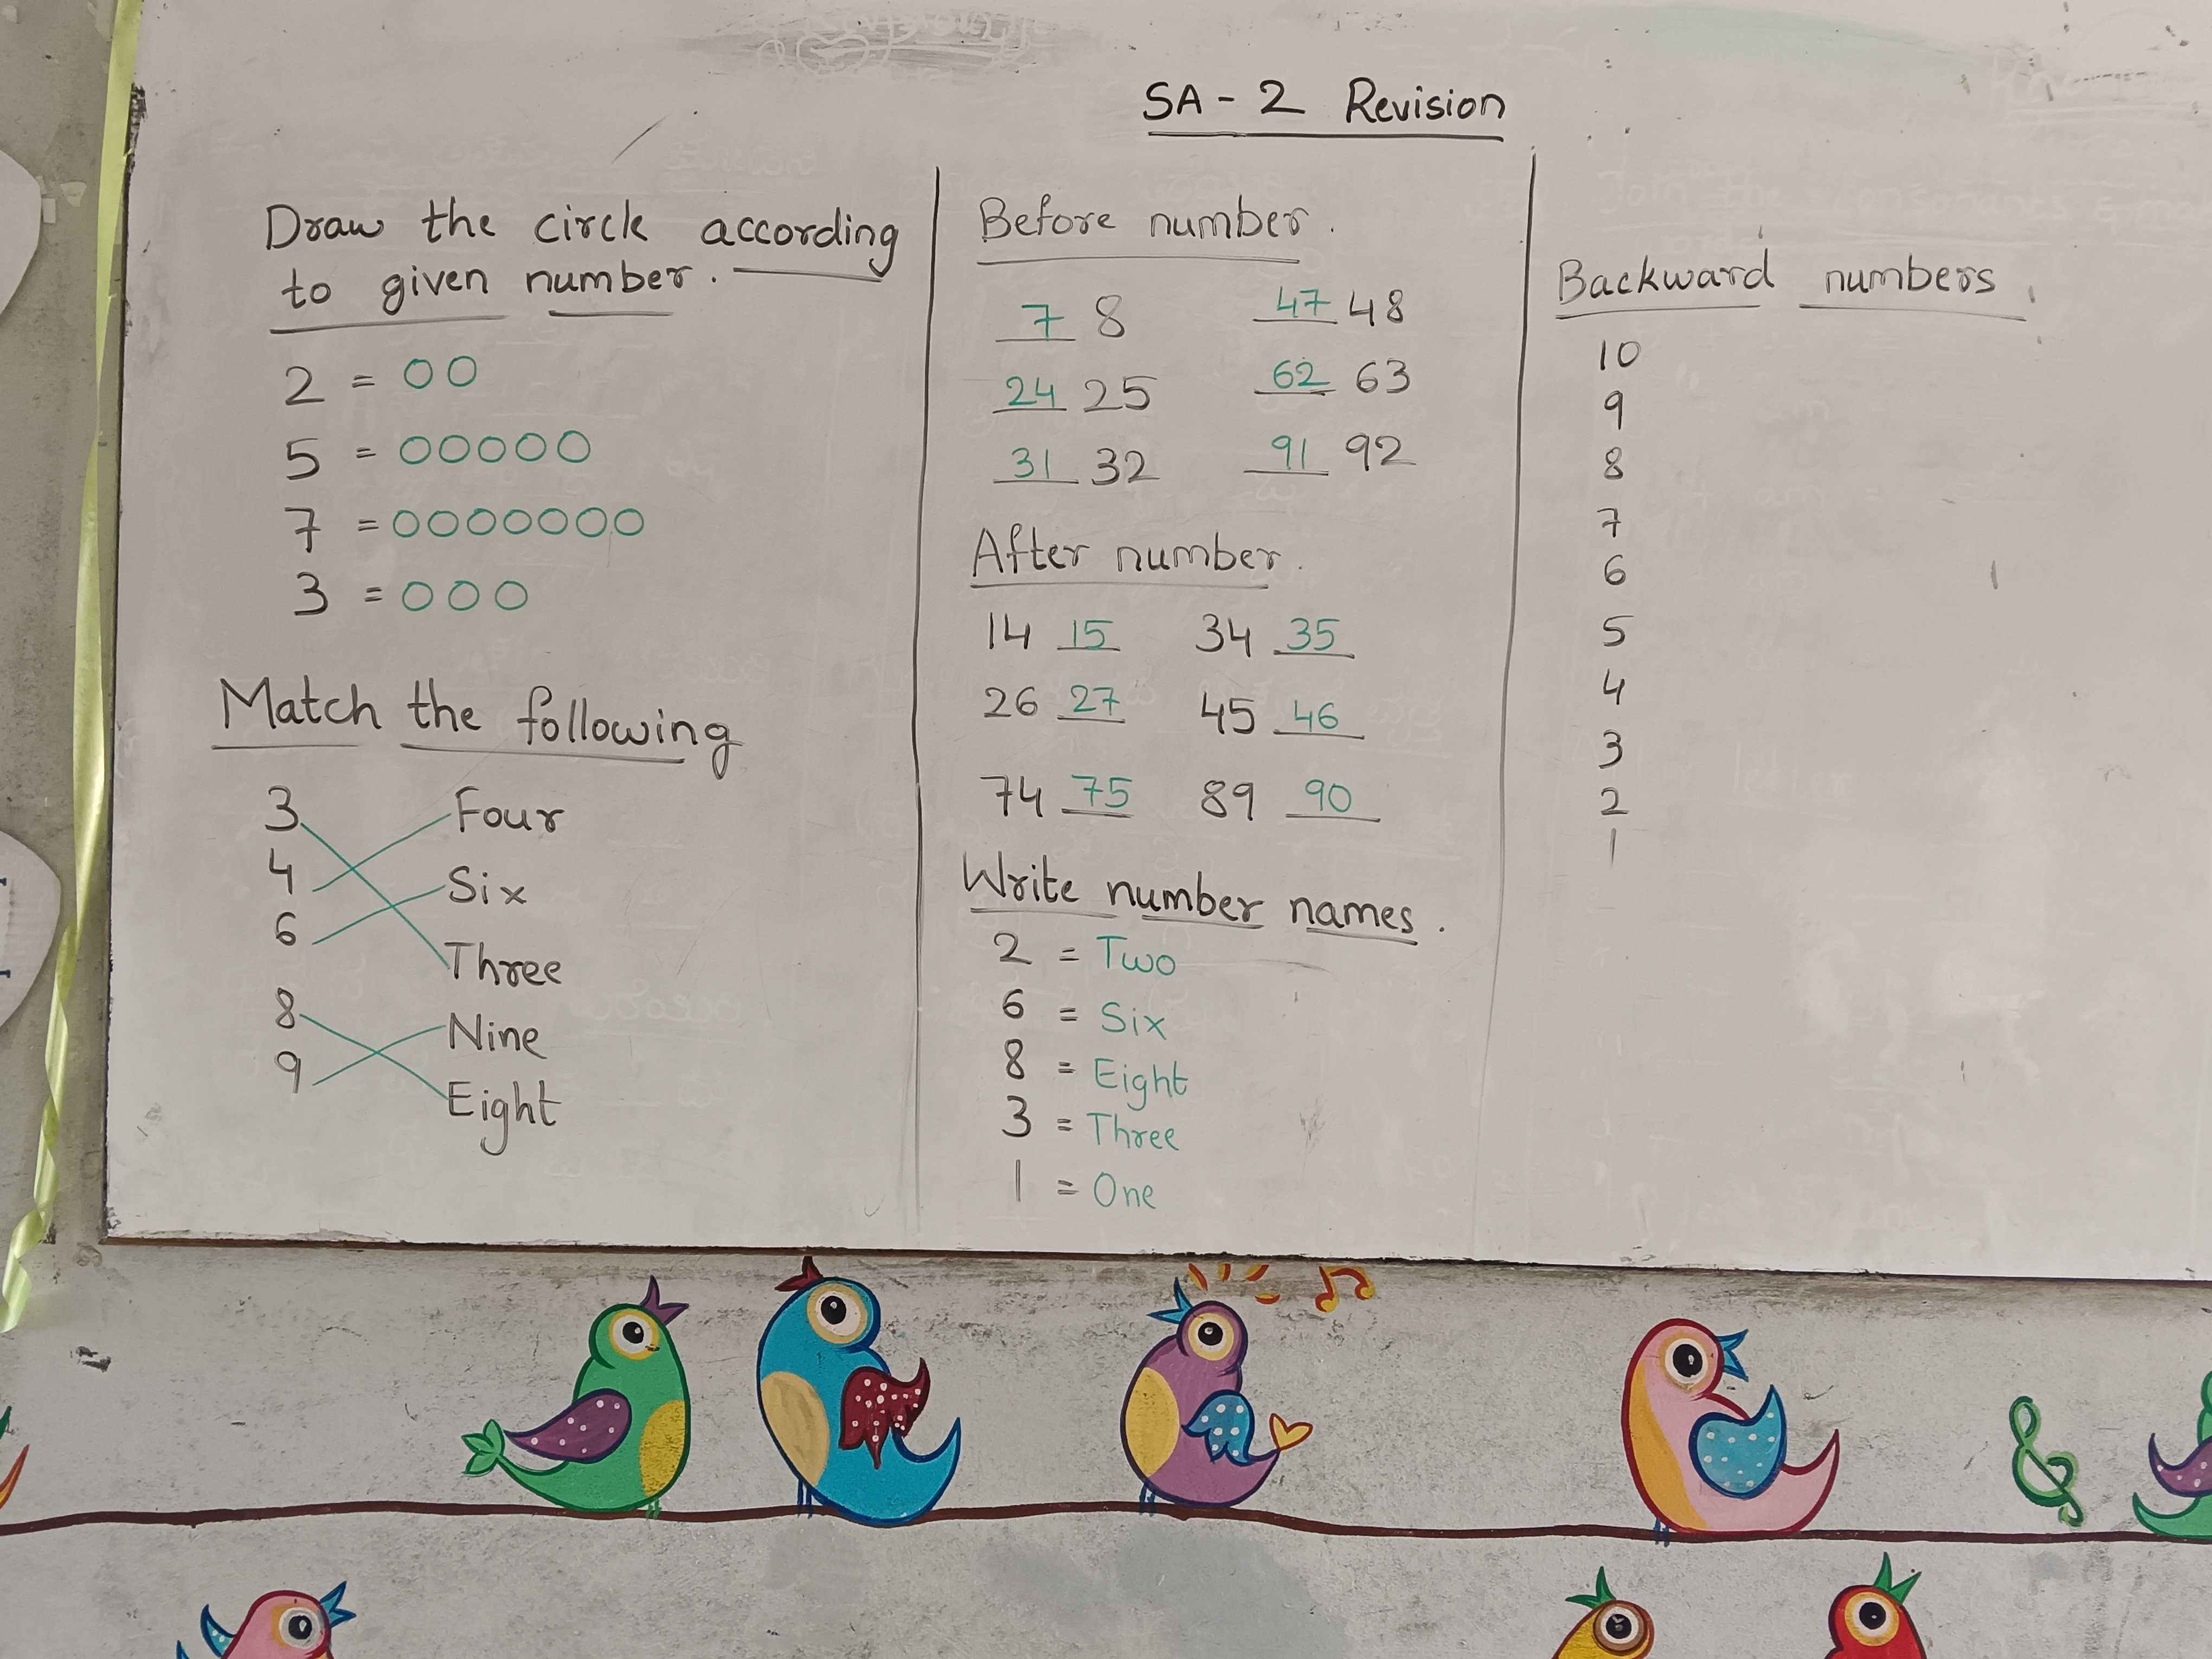 SA - 2 Revision
Draw the circle according
to given number.
2 = OO
5 = OOOOO
7 = OOOOOOO
3 = OOO
Match the following
3 Four
4 Six
6 Three
8 Nine
9 Eight
Before number.
7 8 47 48
24 25 62 63
31 32 91 92
After number.
14 15 34 35
26 27 45 46
74 75 89 90
Write number names.
2 = Two
6 = Six
8 = Eight
3 = Three
1 = One
Backward numbers
10
9
8
7
6
5
4
3
2
1